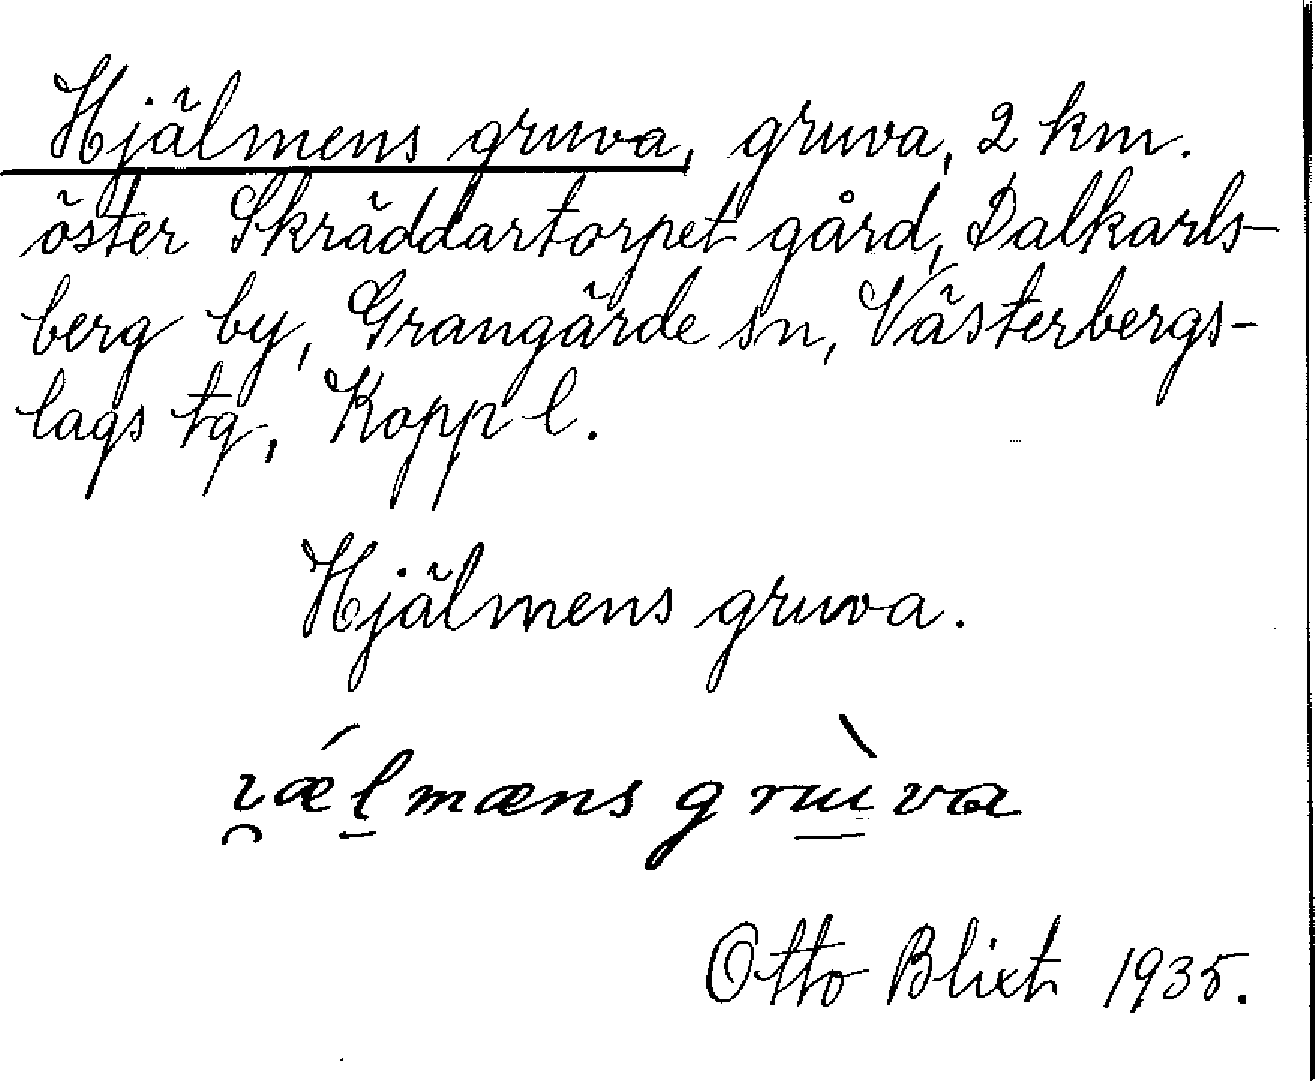 Hjälmens gruva, gruva, 2 km.
öster Skräddartorpet gård, Dalkarls-
berg by, Grangärde sn, Västerbergs-
lags tg, Kopp l.
Hjälmens gruva.
ı̯ǽl̠mæns grɯ̠̀va
Otto Blixt 1935.